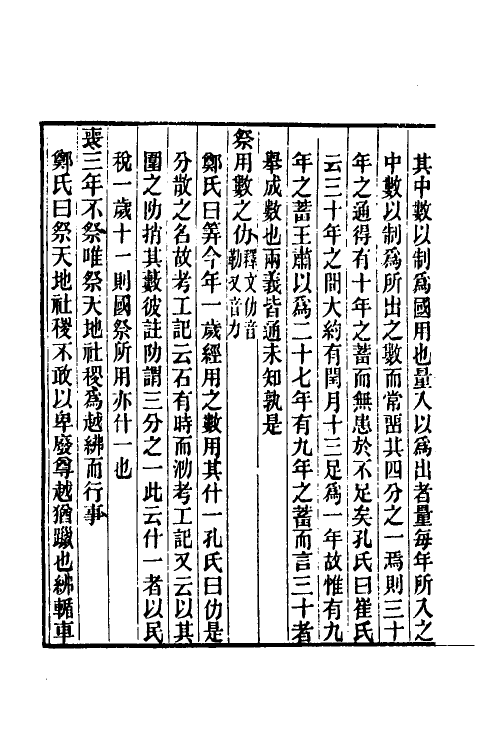 其中數以制爲國用也量入以爲出者量每年所入之
中數以制爲所出之數而常畱其四分之一焉則三十
年之通得有十年之蓄而無患於不足矣孔氏曰崔氏
云三十年之間大約有閏月十三足爲一年故惟有九
年之蓄王肅以爲二十七年有九年之蓄而言三十者
舉成數也兩義皆通未知孰是
祭用數之仂釋文仂音
勒又音力
鄭氏曰筭今年一歲經用之數用其什一孔氏曰仂是
分散之名故考工記云石有時而泐考工記又云以其
圍之阞捎其藪彼註阞謂三分之一此云什一者以民
稅一歲十一則國祭所用亦什一也
喪三年不祭唯祭天地社稷爲越紼而行事
鄭氏曰祭天地社稷不敢以卑廢尊越猶躐也紼輴車